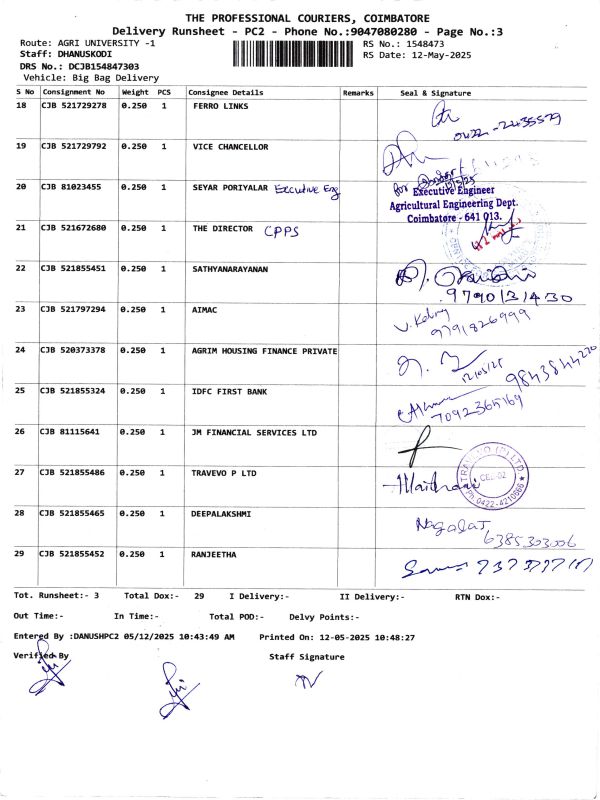 THE PROFESSIONAL COURIERS, COIMBATORE
Delivery Runsheet - PC2 - Phone No.:9047080280 - Page No.:3
Route: AGRI UNIVERSITY -1
RS No.: 1548473
Staff: DHANUSKODI
RS Date: 12-May-2025
DRS No.: DCJB154847303
Vehicle: Big Bag Delivery
S No Consignment No Weight PCS Consignee Details Remarks Seal & Signature
18 CJB 521729278 0.250 1 FERRO LINKS
0422 - 2435529
19 CJB 521729792 0.250 1 VICE CHANCELLOR
20 CJB 81023455 0.250 1 SEYAR PORIYALAR Executive Eng
for
Executive Engineer
Agricultural Engineering Dept.
Coimbatore - 641 013.
21 CJB 521672680 0.250 1 THE DIRECTOR CPPS
22 CJB 521855451 0.250 1 SATHYANARAYANAN
9790131430
23 CJB 521797294 0.250 1 AIMAC
9791826999
24 CJB 520373378 0.250 1 AGRIM HOUSING FINANCE PRIVATE
12/05/25
9843844220
25 CJB 521855324 0.250 1 IDFC FIRST BANK
7092365169
26 CJB 81115641 0.250 1 JM FINANCIAL SERVICES LTD
27 CJB 521855486 0.250 1 TRAVEVO P LTD
TRAVEVO (P) LTD.
CBE-02
Ph:0422-4210666
28 CJB 521855465 0.250 1 DEEPALAKSHMI
Nagalat
6385303006
29 CJB 521855452 0.250 1 RANJEETHA
Tot. Runsheet:- 3 Total Dox:- 29 I Delivery:- II Delivery:- RTN Dox:-
Out Time:- In Time:- Total POD:- Delvy Points:-
Entered By :DANUSHPC2 05/12/2025 10:43:49 AM Printed On: 12-05-2025 10:48:27
Verified By Staff Signature